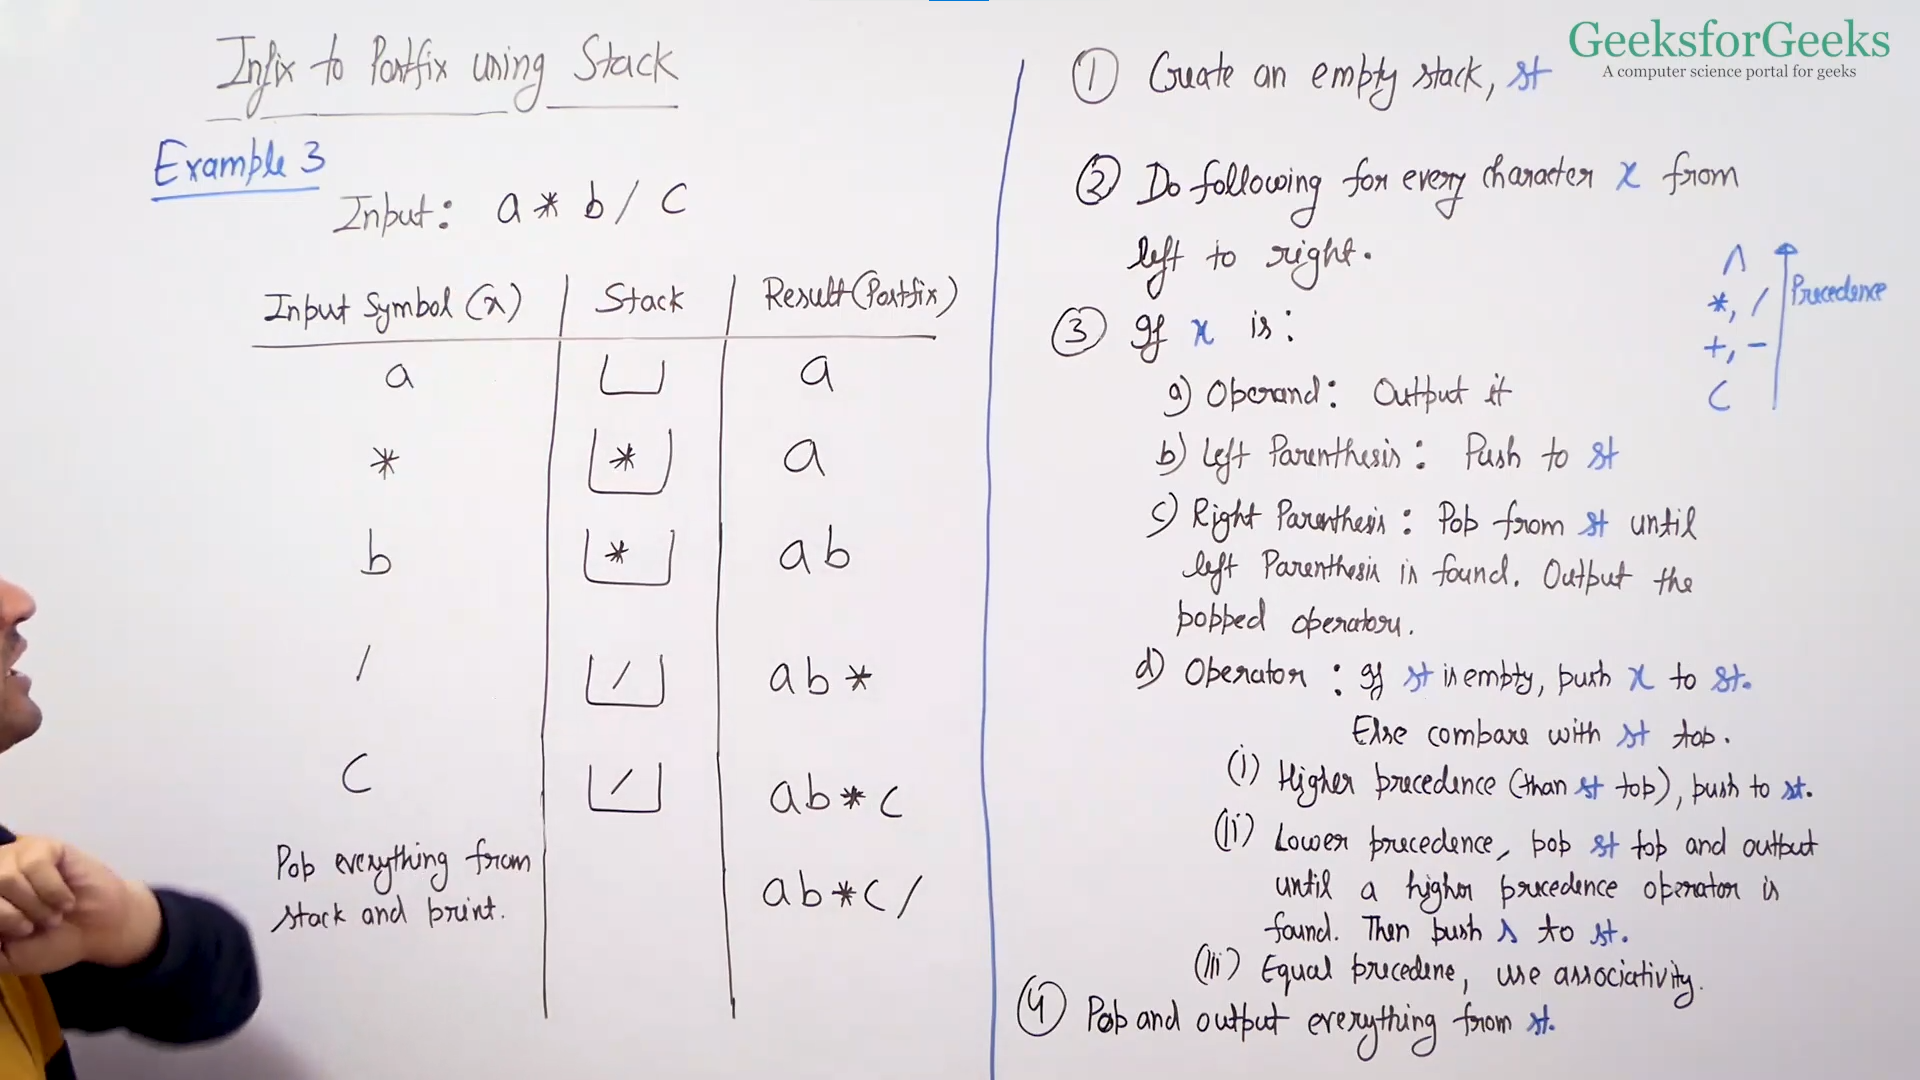 Infix to Postfix using Stack
Example 3
Input: a * b / c
Input Symbol (x) Stack Result (Postfix)
a a
* * a
b * ab
/ / ab*
c / ab*c
Pop everything from
stack and print.
ab*c/
GeeksforGeeks
A computer science portal for geeks
① Create an empty stack, st
② Do following for every character x from
left to right.
③ If x is:
a) Operand: Output it
b) Left Parenthesis: Push to st
c) Right Parenthesis: Pop from st until
left Parenthesis is found. Output the
popped operators.
d) Operator: If st is empty, push x to st.
Else compare with st top.
(i) Higher precedence (than st top), push to st.
(ii) Lower precedence, pop st top and output
until a higher precedence operator is
found. Then push s to st.
(iii) Equal precedene, use associativity.
④ Pop and output everything from st.
^
*, /
+, -
(
Precedence